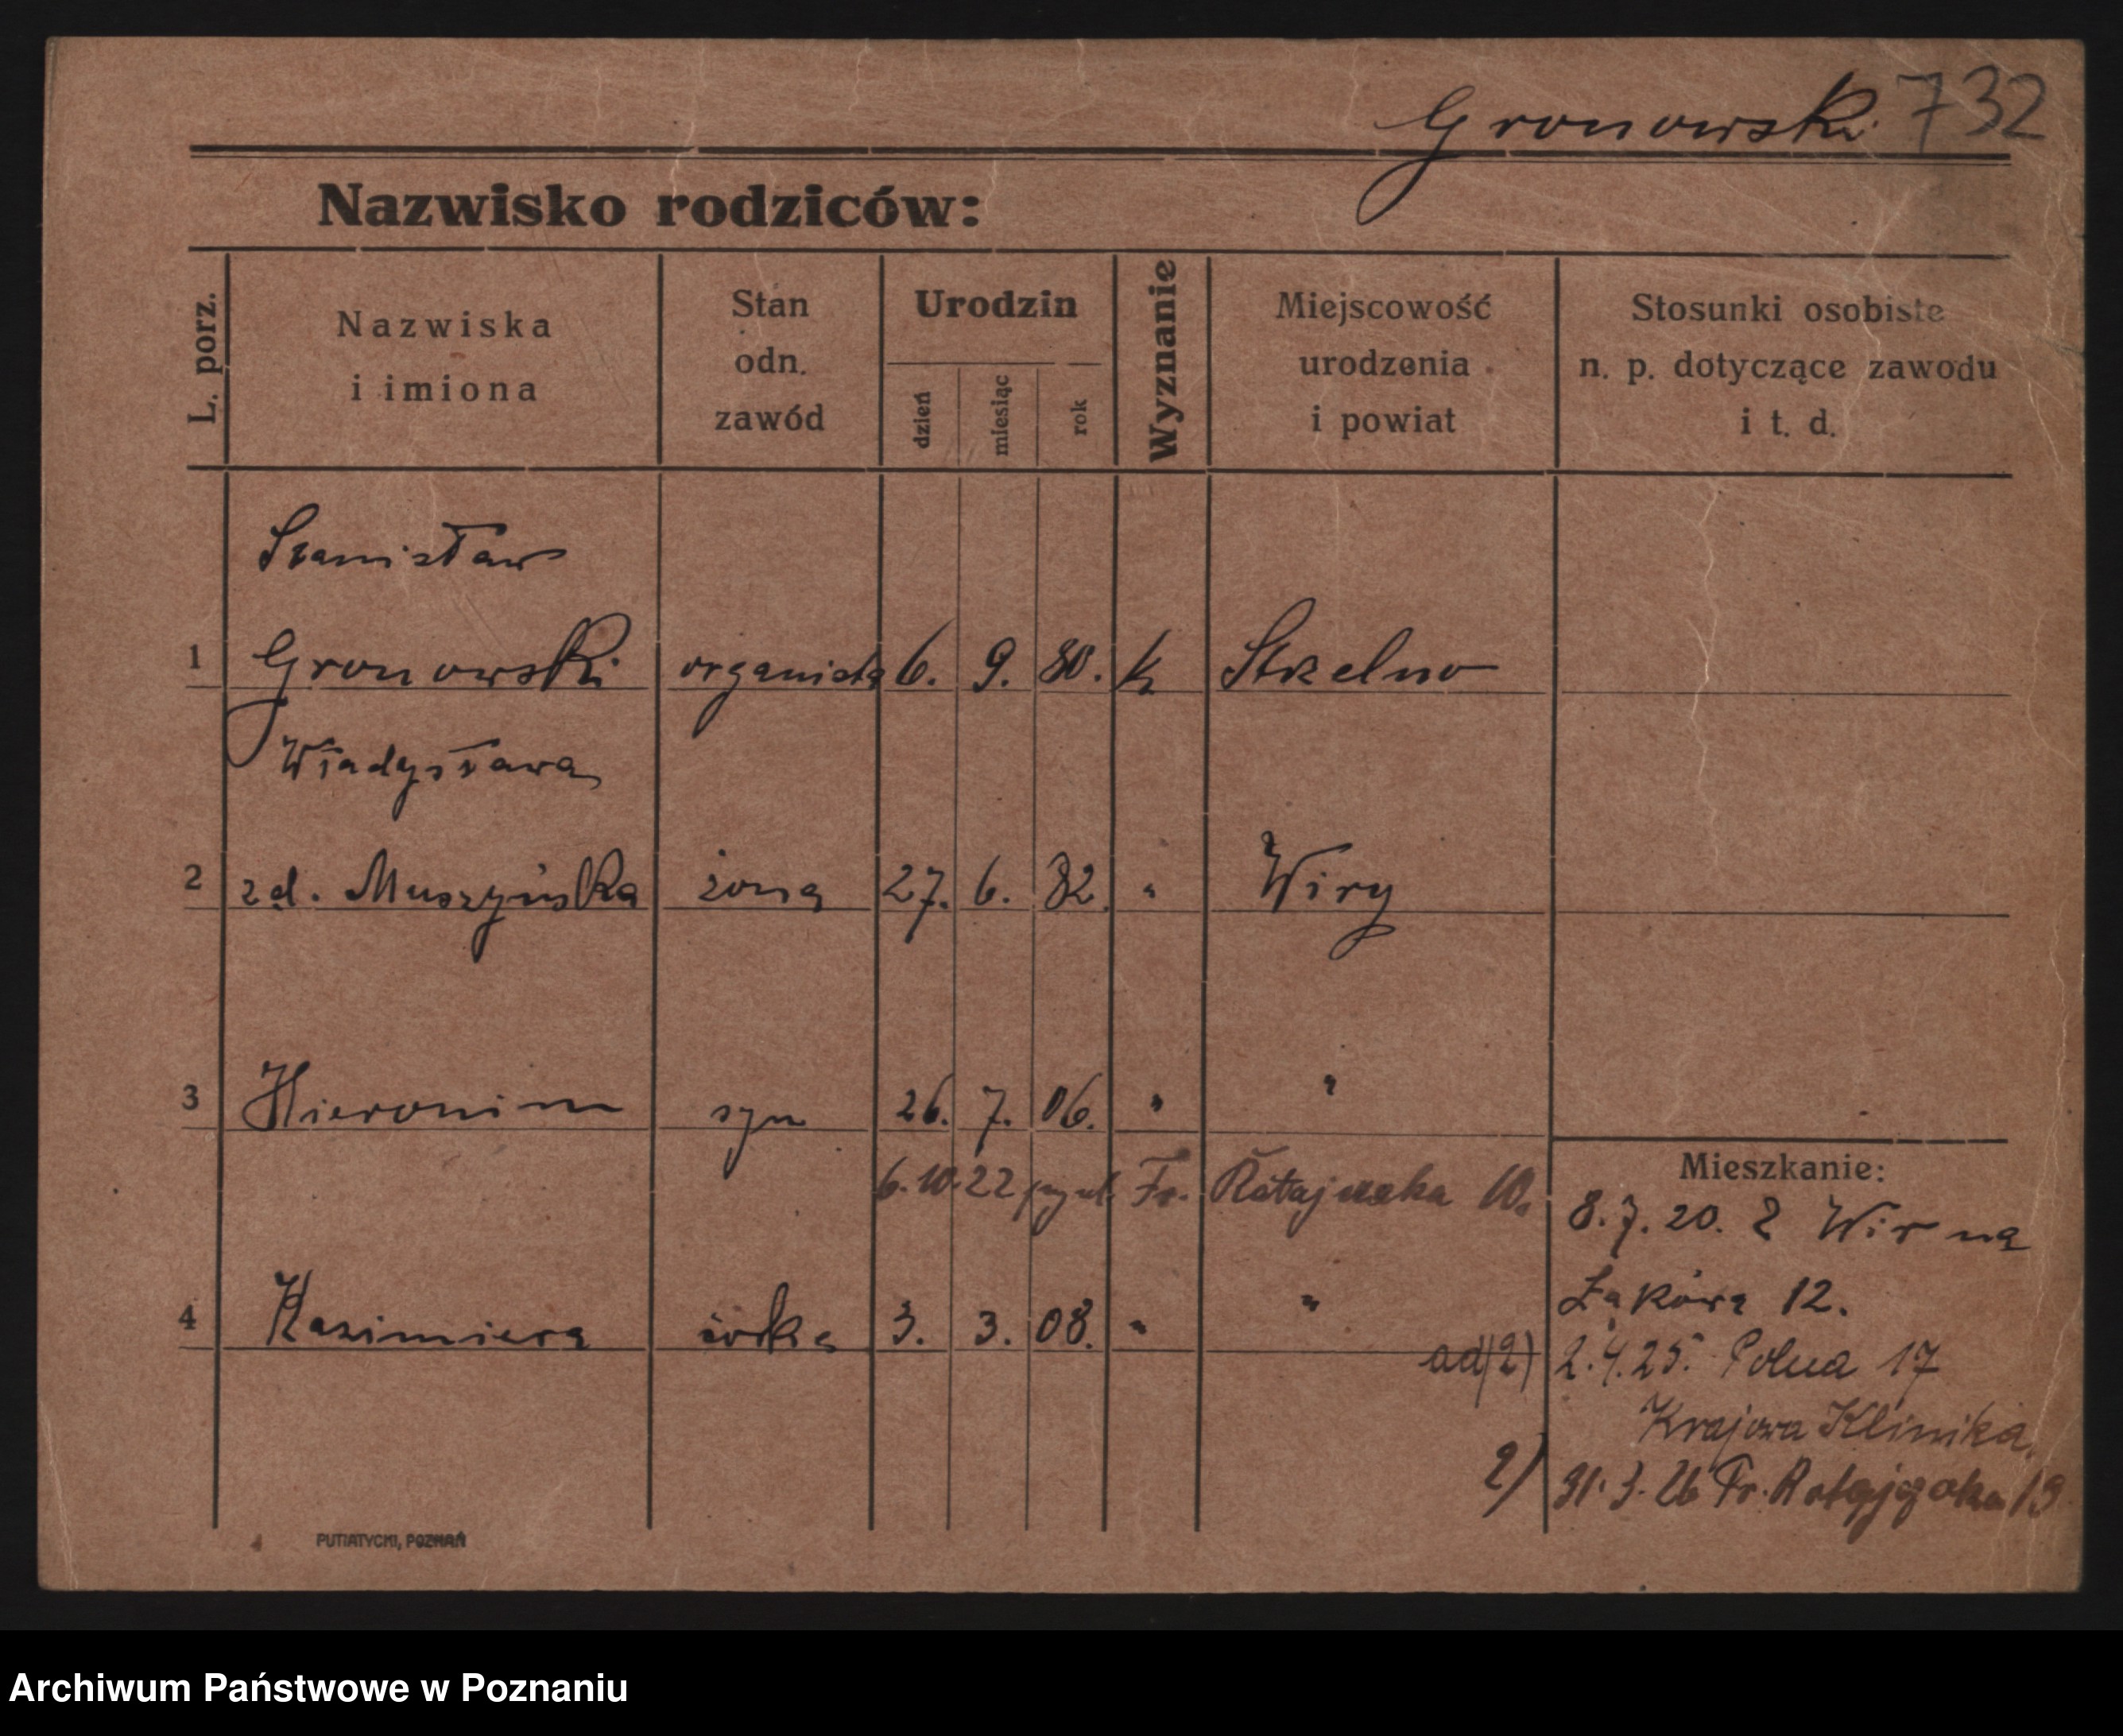 Gronowski 732
Nazwisko rodziców:
L. porz.
Nazwiska
i imiona
Stan
odn.
zawód
Urodzin
dzień
miesiąc
rok
Wyznanie
Miejscowość
urodzenia
i powiat
Stosunki osobiste
n. p. dotyczące zawodu
i t. d.
Stanisław
1 Gronowski organista 6. 9. 80. k Strzelno
Władysława
2 zd. Muszyńska żona 27. 6. 82. " Wiry
3 Hieronim syn 26. 7. 06. " "
6.10.22 Fr. Ratajczaka 10.
4 Kazimiera córka 3. 3. 08. " "
Mieszkanie:
8.7.20. Z Wir na
Łąkowa 12.
ad 2) 2.4.25. Polna 17
Krajowa Klinika
2) 31.3.26 Fr. Ratajczaka 19
PUTIATYCKI, POZNAŃ
Archiwum Państwowe w Poznaniu